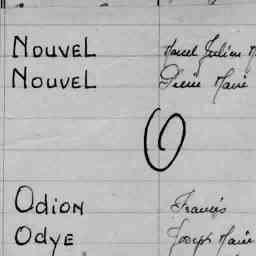 NOUVEL Marcel Julien M
NOUVEL Pierre Marie
O
ODION Francis
ODYE Joseph Marie